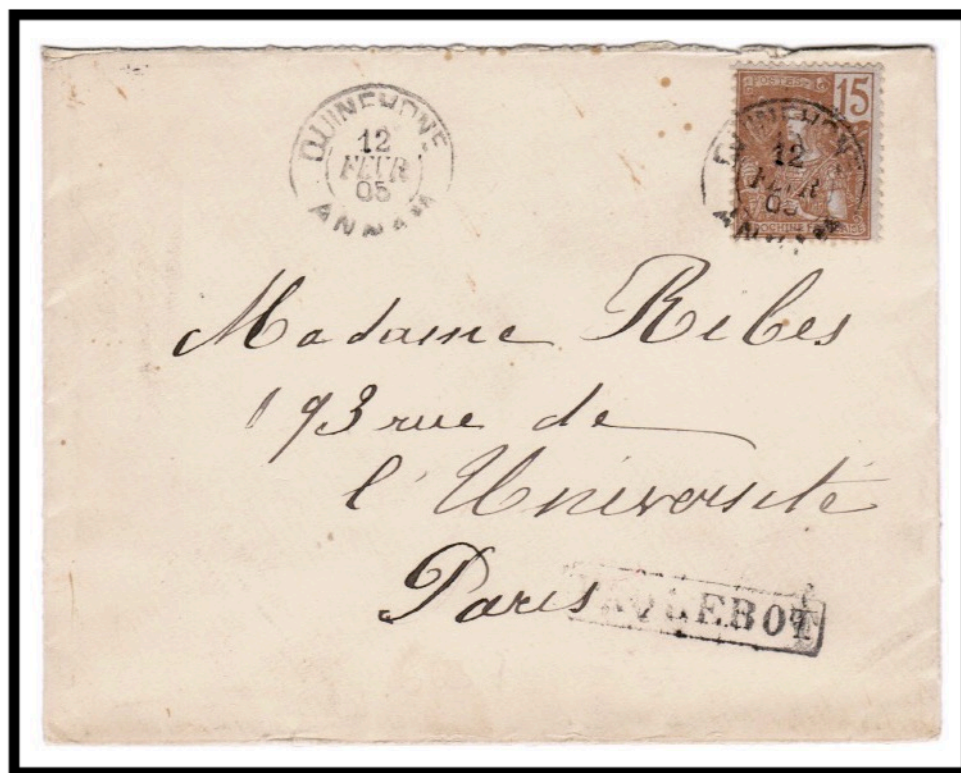 QUINEHONE
12
FEVR
05
ANNAM
POSTES
15
QUINEHON
12
FEVR
05
ANNAM
INDOCHINE FRANÇAISE
Madame Ribes
193 rue de
l'Université
Paris
PAQUEBOT